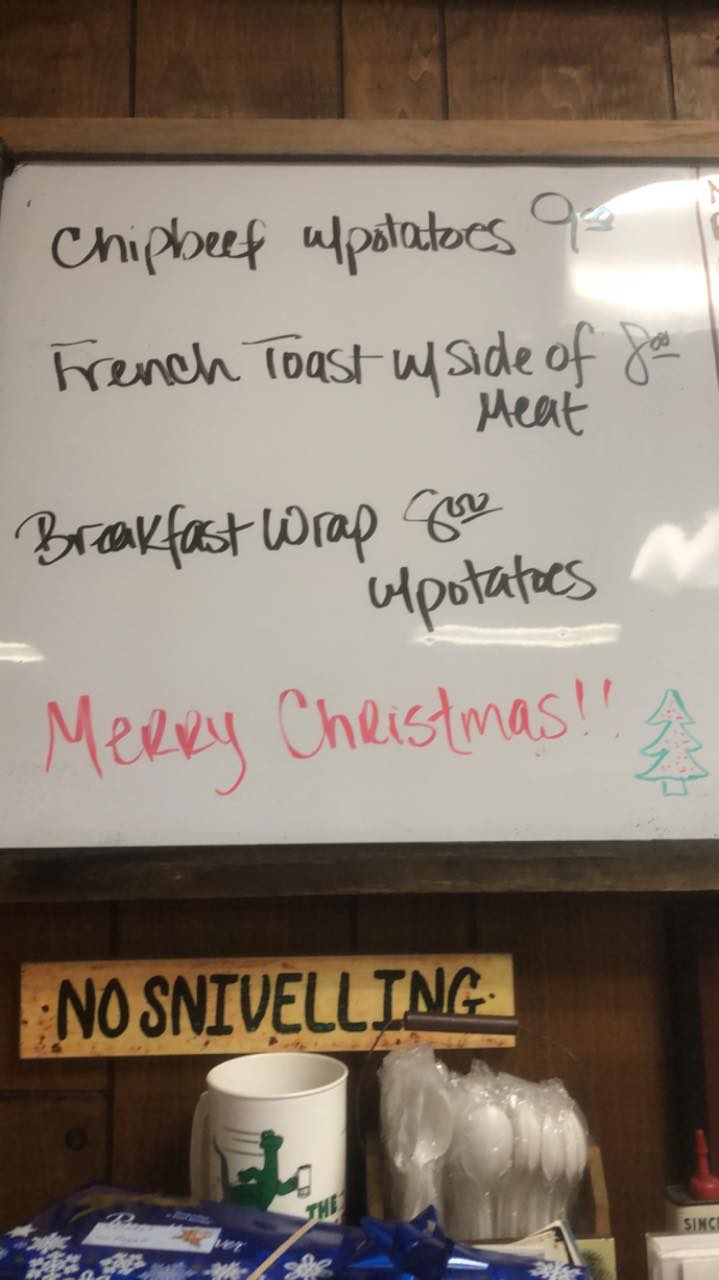 Chipbeef w/potatoes 9⁰⁰
French Toast w/ Side of 8⁰⁰
Meat
Breakfast Wrap 8⁰⁰
w/potatoes
Merry Christmas!!
·NO SNIVELLING·
THE
SINC